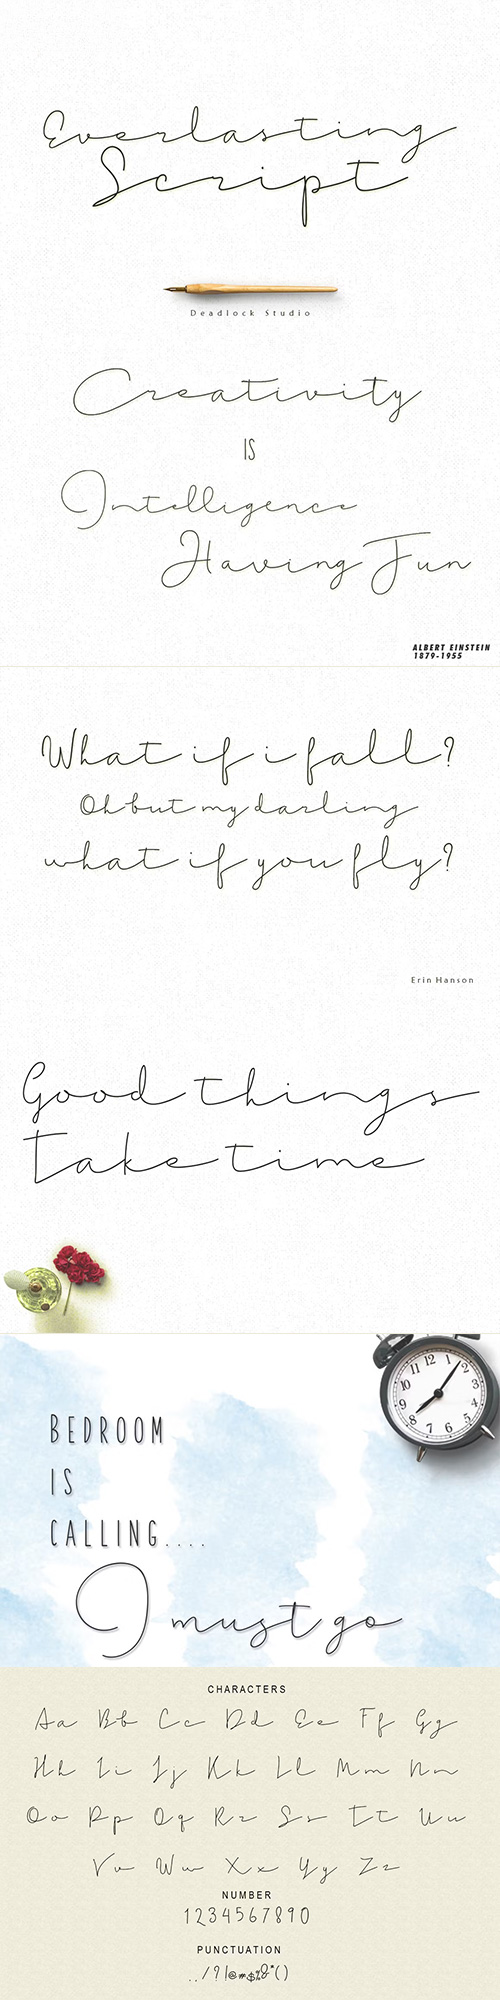 Everlasting
Script
Deadlock Studio
Creativity
IS
Intelligence
Having Fun
ALBERT EINSTEIN
1879-1955
What if i fall?
Oh but my darling
what if you fly?
Erin Hanson
Good things
Take time
12 1 2 3 4 5 6 7 8 9 10 11
BEDROOM
IS
CALLING....
I must go
CHARACTERS
Aa Bb Cc Dd Ee Ff Gg
Hh Ii Jj Kk Ll Mm Nn
Oo Pp Qq Rr Ss Tt Uu
Vv Ww Xx Yy Zz
NUMBER
1234567890
PUNCTUATION
. , / ? ! @ # $ % & * ( )